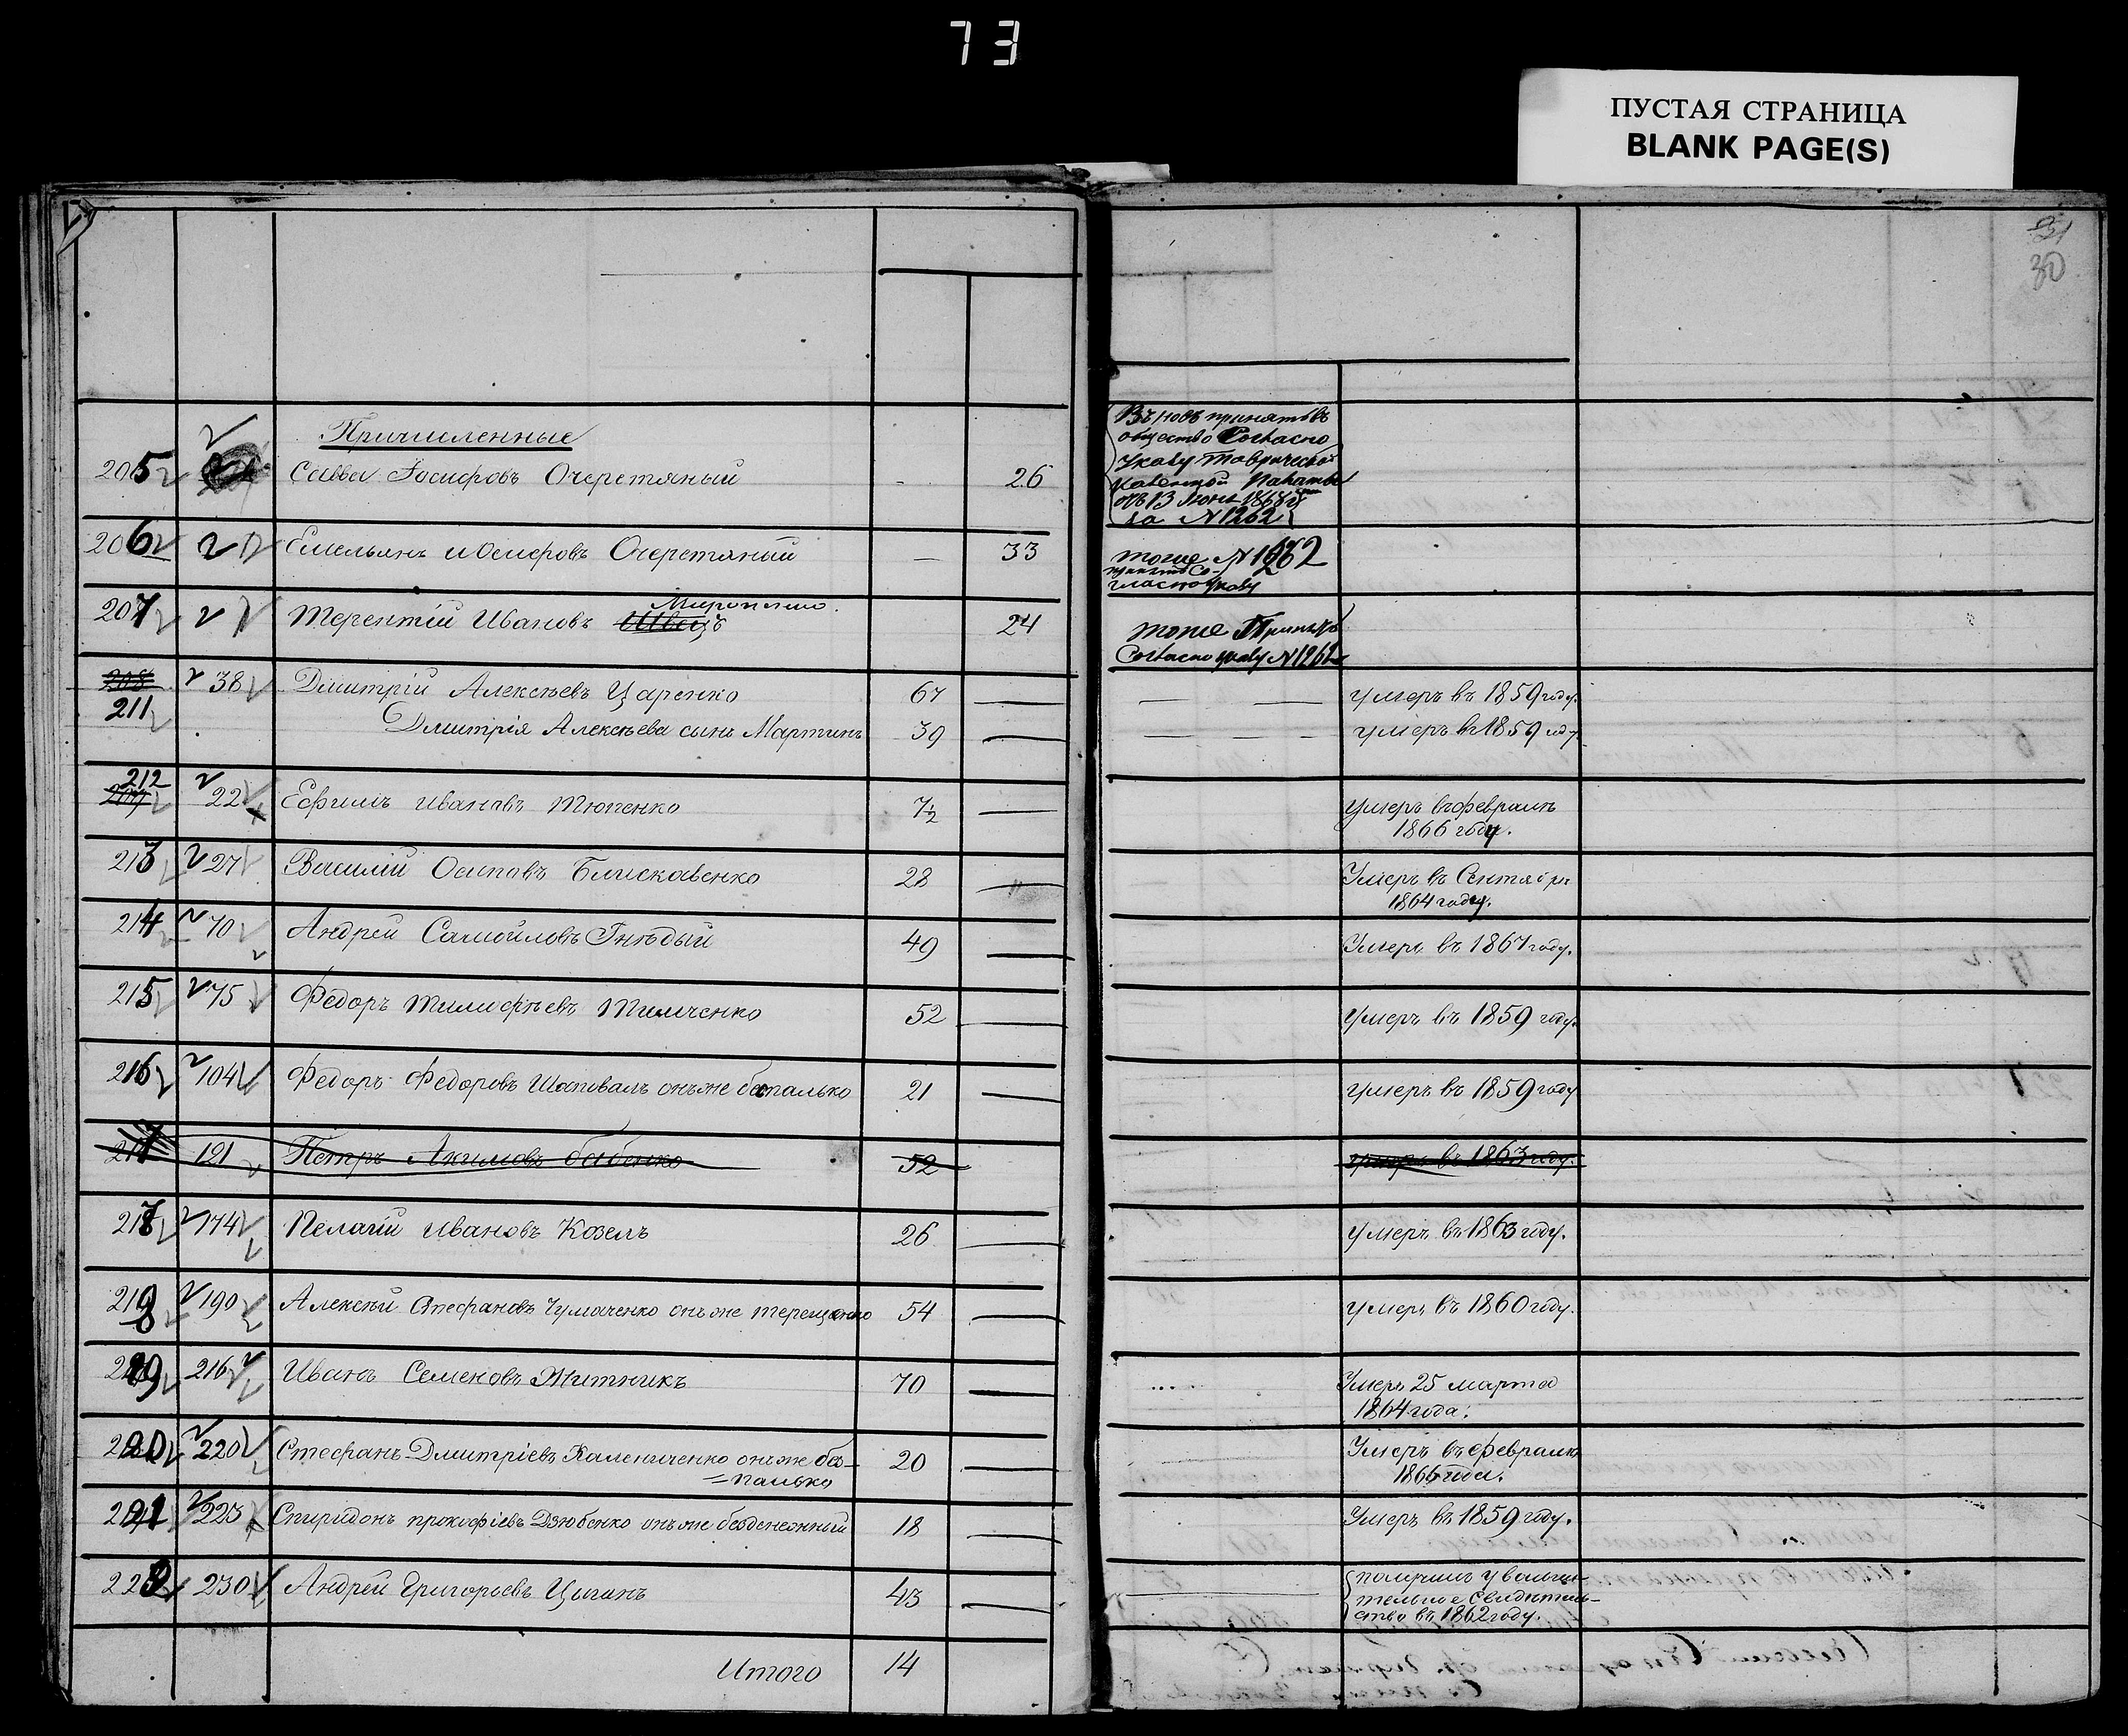 73
ПУСТАЯ СТРАНИЦА
BLANK PAGE(S)
30
Причисленные
205 Савва Іосифовъ Очеретяный - 26
Въ новъ принятъ въ
общество Согласно
Указу Таврической
Казенной Палаты
отъ 13 Іюня 1868 г
за № 1262
206 Емельянъ Иосифовъ Очеретяный — 33
тоже № 1262
принятъ Со-
гласно указу
Миропенко
207 Терентій Ивановъ Швецъ 24
тоже Принятъ
Согласно указу № 1262
208 38 Дмитрій Алексѣевъ Царенко 67 — умеръ въ 1859 году.
211
Дмитрія Алексѣева сынъ Мартинъ 39 — умеръ въ 1859 году
212
22 Ефимъ Ивановъ Тюпенко 7½ — умеръ въ февралѣ
1866 году.
213 27 Василій Осиповъ Блискавенко 28 — Умеръ въ Сентябрѣ
1864 году.
214 70 Андрей Самойловъ Гнѣдый 49 — Умеръ въ 1867 году.
215 75 Федоръ Тимофѣевъ Тимченко 52 — умеръ въ 1859 году.
216 104 Федоръ Федоровъ Шаповалъ онъ же бапалько 21 — умеръ въ 1859 году
217 121 Петръ Акимовъ бабенко 52 умеръ въ 1863 году.
217 174 Пелагій Ивановъ Козелъ 26 — умеръ въ 1863 году.
218 190 Алексѣй Стефановъ Чумаченко онъ же терещенко 54 — умеръ въ 1860 году.
219 216 Иванъ Семеновъ Житникъ 70 — Умеръ 25 марта
1864 года.
220 220 Стефанъ Дмитріевъ Калениченко онъ же ба-
=палько 20 — Умеръ въ февралѣ
1866 года.
221 223 Спиридонъ прокофіевъ Дзюбенко онъ же безденежный 18 — Умеръ въ 1859 году.
222 230 Андрей Григорьевъ Цыганъ 43 — получилъ увольни-
тельное свидѣтель-
ство въ 1862 году.
Итого 14